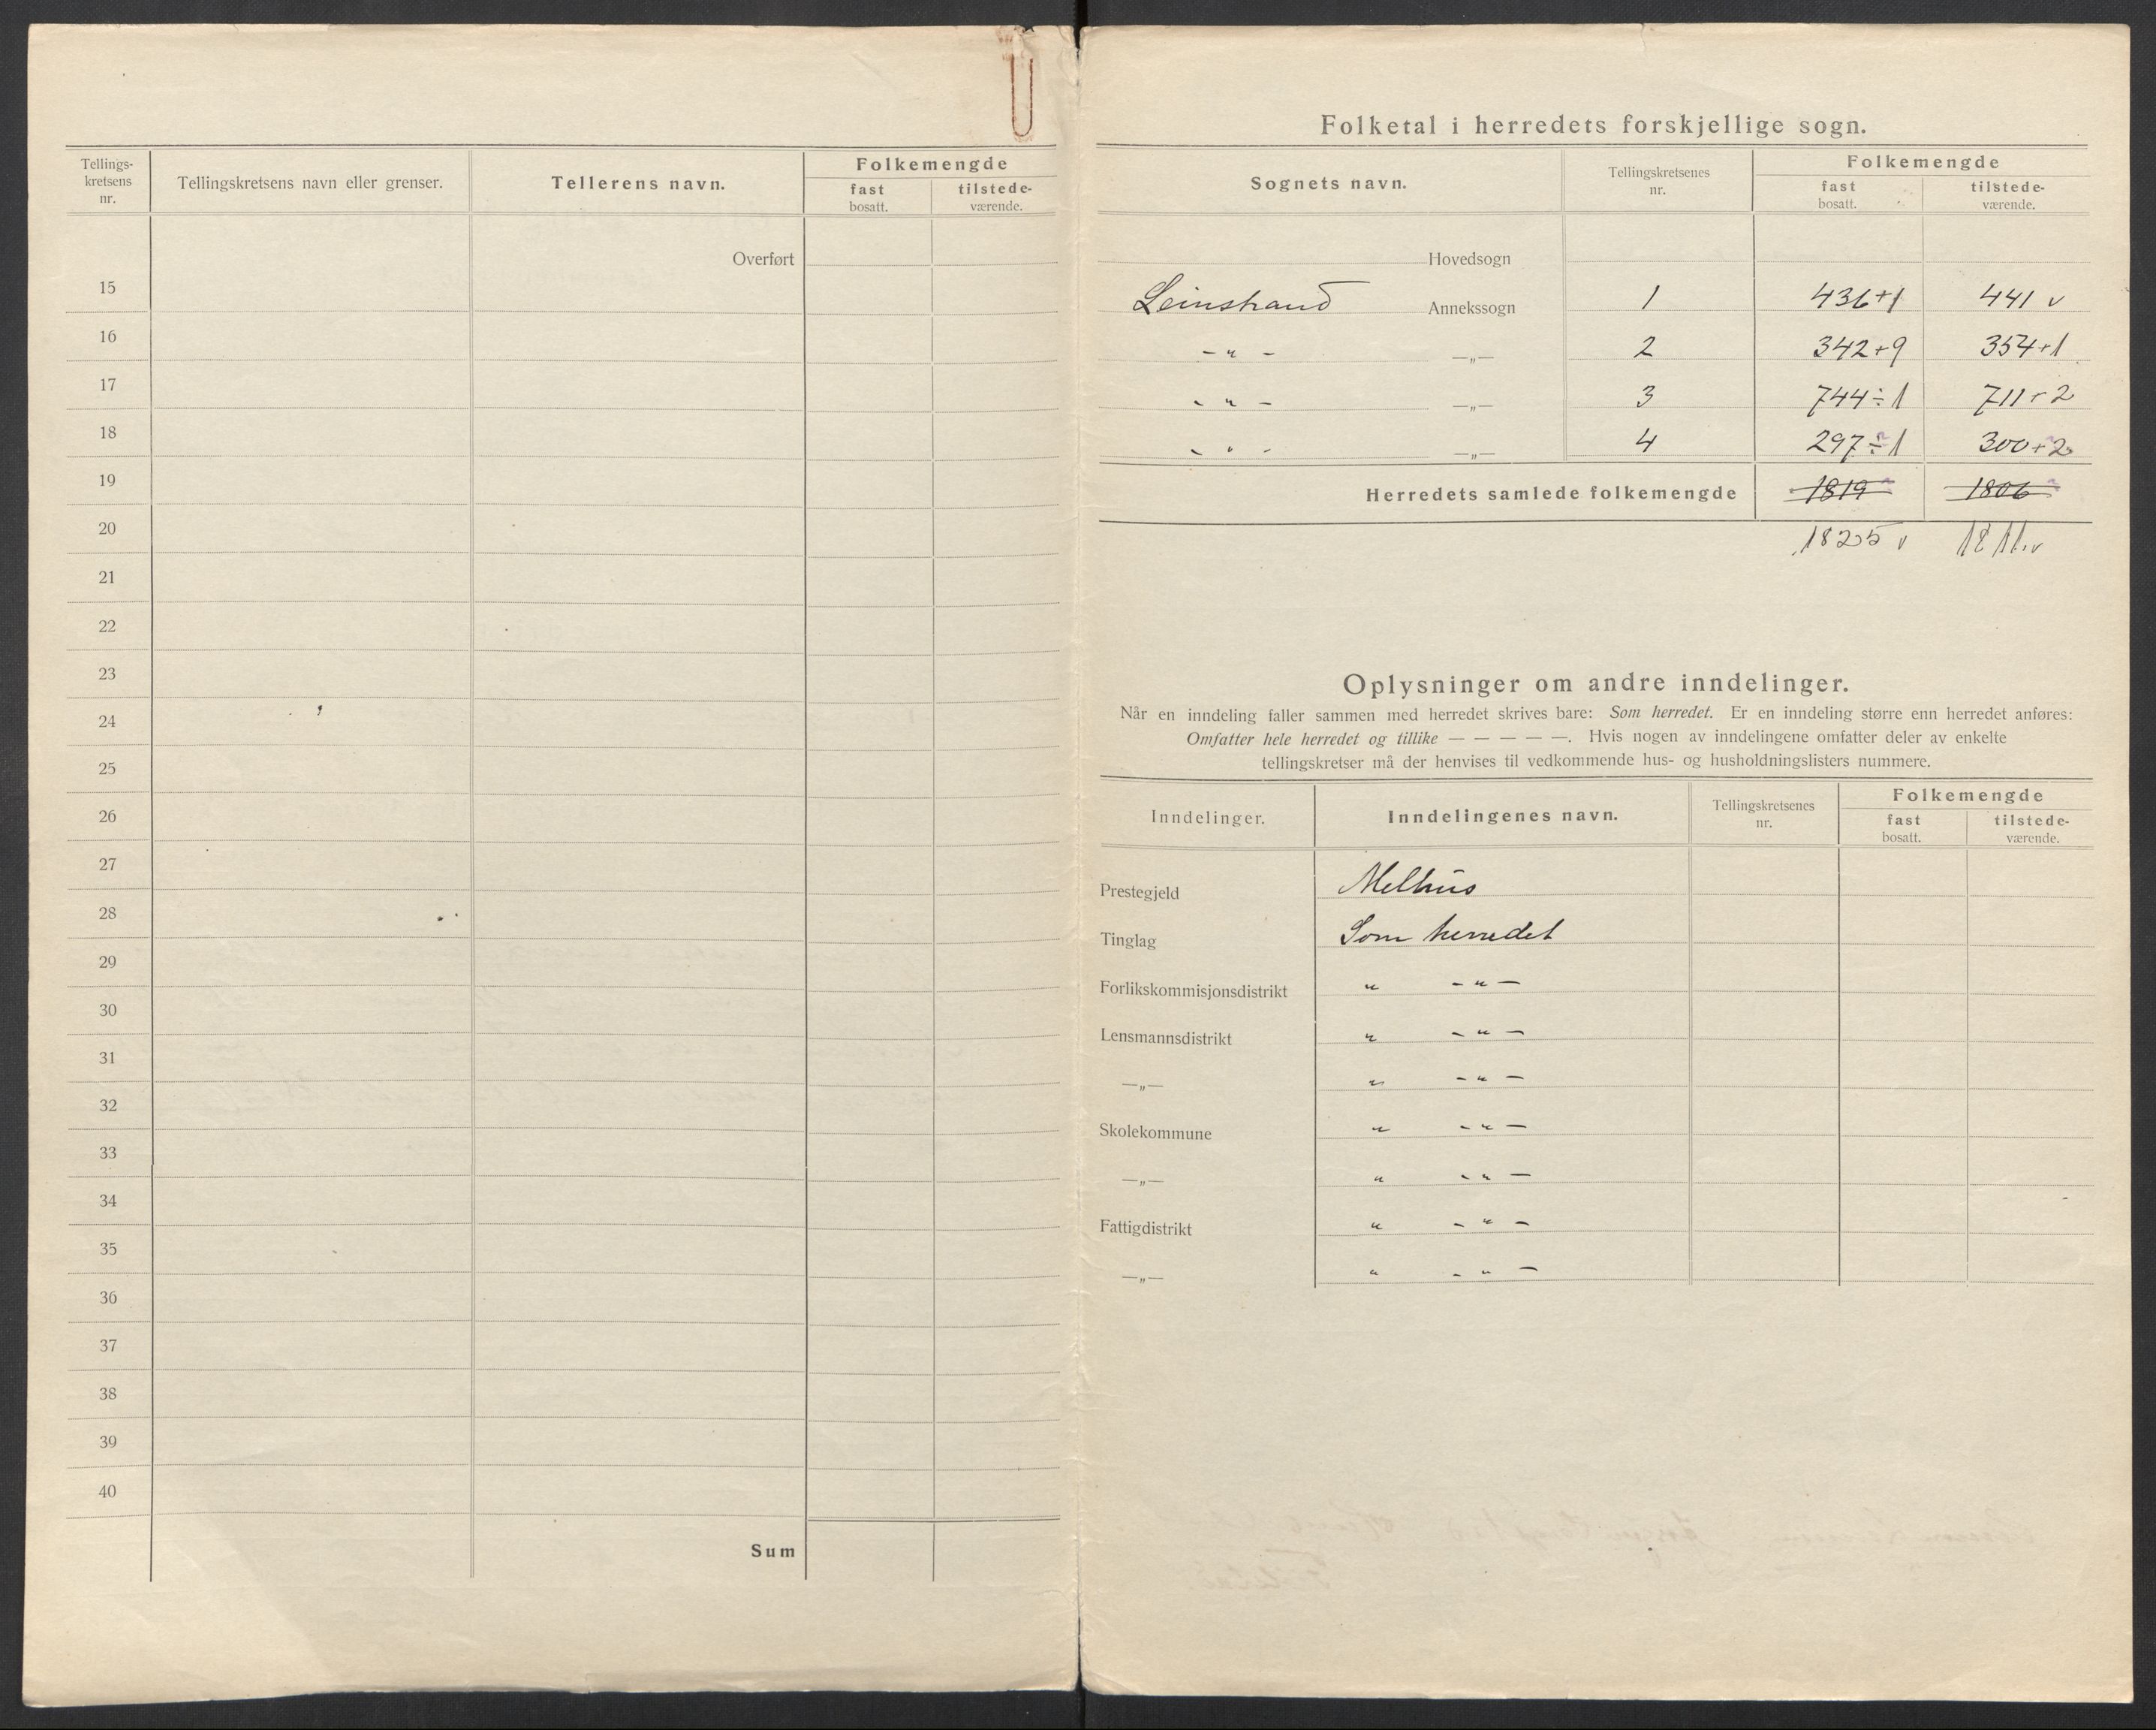 Tellings-
kretsens
nr.
Tellingskretsens navn eller grenser.
Tellerens navn.
Folkemengde
fast
bosatt.
tilstede-
værende.
Overført
15
16
17
18
19
20
21
22
23
24
25
26
27
28
29
30
31
32
33
34
35
36
37
38
39
40
Sum
Folketal i herredets forskjellige sogn.
Sognets navn.
Tellingskretsenes
nr.
Folkemengde
fast
bosatt.
tilstede-
værende.
Hovedsogn
Leinstrand Annekssogn 1 436+1 441 v
-"- —„— 2 342+9 354+1
-"- —„— 3 744÷1 711+2
-"- —„— 4 297÷1 300+2
Herredets samlede folkemengde 1819 1806
1825 v 1811 v
Oplysninger om andre inndelinger.
Når en inndeling faller sammen med herredet skrives bare: Som herredet. Er en inndeling større enn herredet anføres:
Omfatter hele herredet og tillike — — — — —. Hvis nogen av inndelingene omfatter deler av enkelte
tellingskretser må der henvises til vedkommende hus- og husholdningslisters nummere.
Inndelinger.
Inndelingenes navn.
Tellingskretsenes
nr.
Folkemengde
fast
bosatt.
tilstede-
værende.
Prestegjeld Melhus
Tinglag Som herredet
Forlikskommisjonsdistrikt " -"-
Lensmannsdistrikt " -"-
—„— " -"-
Skolekommune " -"-
—„— " -"-
Fattigdistrikt " -"-
—„— " -"-